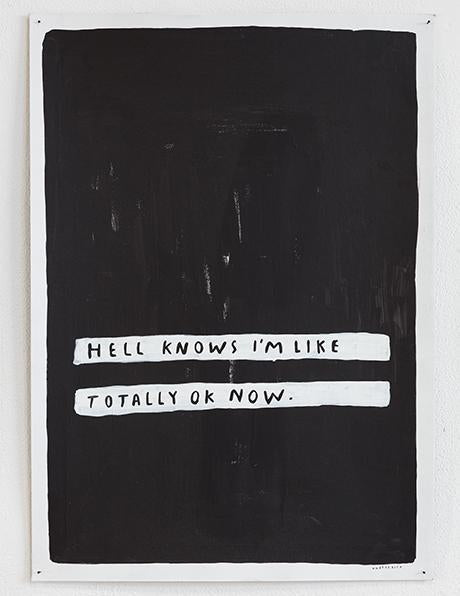 HELL KNOWS I'M LIKE
TOTALLY OK NOW.